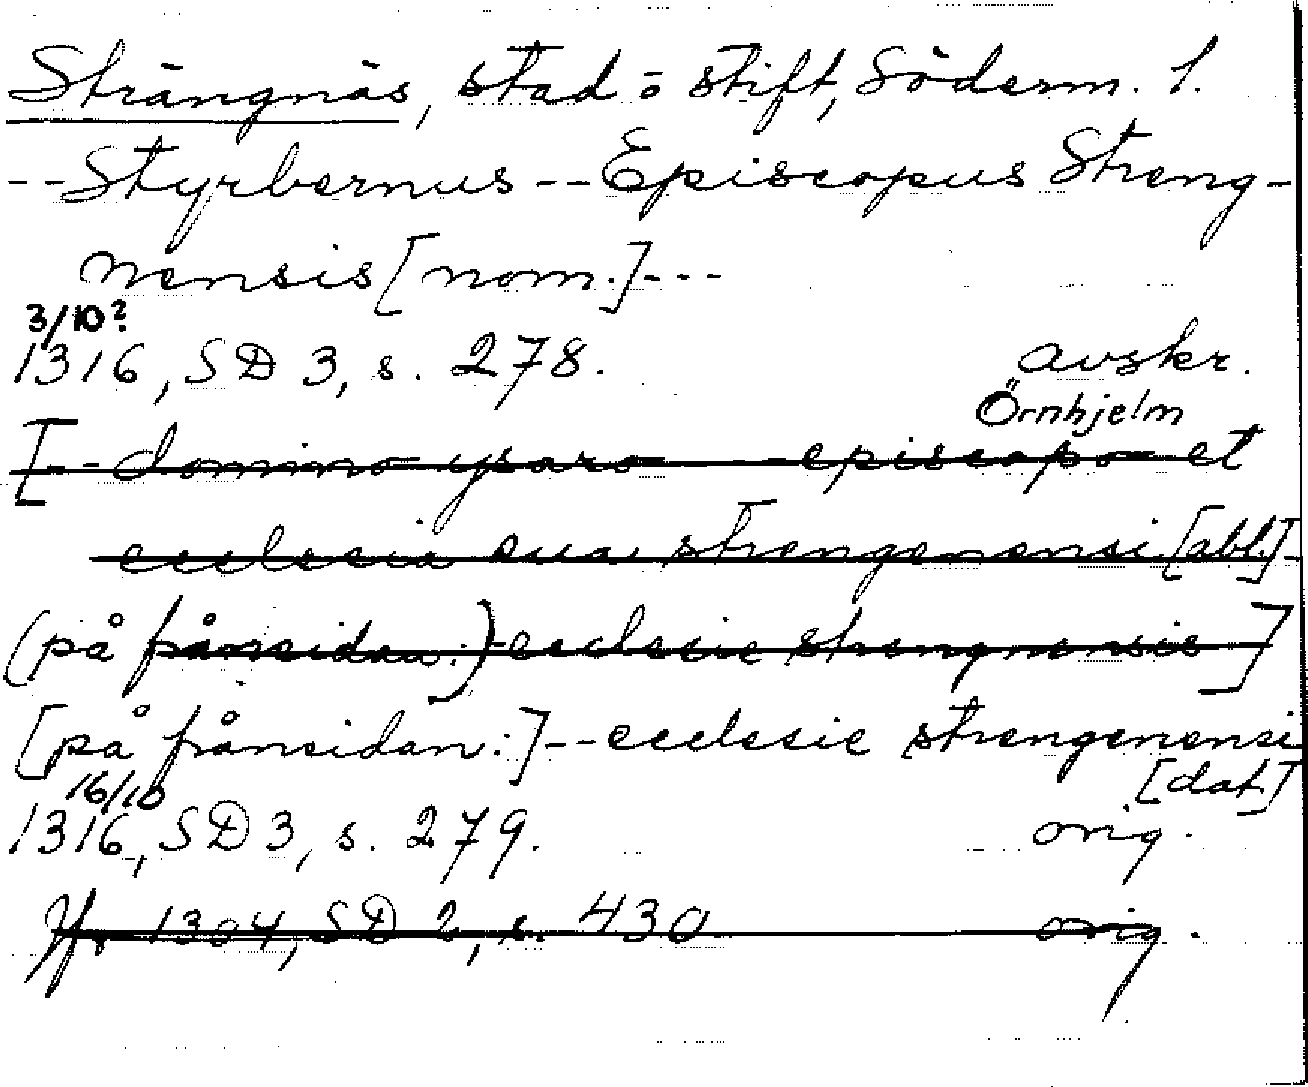 Strängnäs, stad o stift, Söderm. l.
--Styrbernus--Episcopus Streng-
nensis [nom.]---
3/10?
1316, SD 3, s. 278. avskr.
Örnhjelm
[--domino ysaro -- episcopo et
ecclesia sua strengenensi [abl.]-
(på frånsidan:) ecclesie strengnensis]
[på frånsidan:]--ecclesie strengenensi
[dat.]
16/10
1316, SD 3, s. 279. orig.
Jfr 1304, SD 2, s. 430 orig.